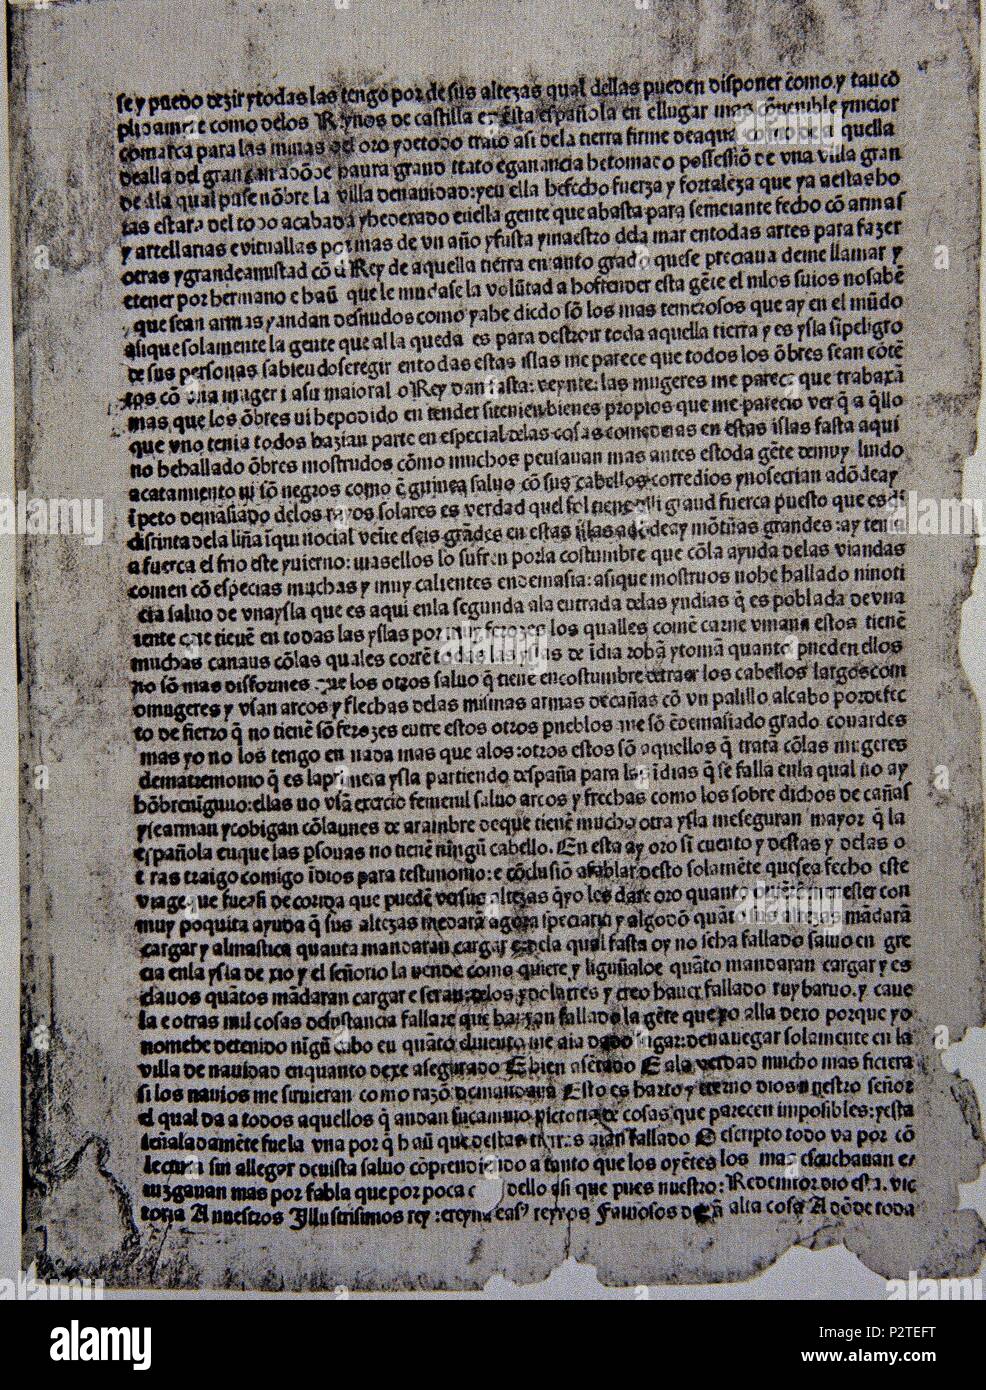 se y puedo dezir y todas las tengo por de sus altezas qual dellas pueden disponer cõmo. y tan cõ
plidamẽte como delos Reynos de castilla en esta española en ellugar mas cõuenible y meior
comarca para las minas del oro y detodo trato asi dela tierra firme deaqua como dea quella
dealla del gran can adõde haura grand trato eganancia hetomado possessiõ de vna villa gran
de ala qual puse nõbre la villa denauidad: y en ella hefecho fuerza y fortaleza que ya aestas ho
ras estara del todo acabada y hedexado enella gente que abasta para semeiante fecho cõ armas
y artellarias e vituallas por mas de vn año y fusta y maestro dela mar entodas artes para fazer
otras y grandeamistad cõ el Rey de aquella tierra en tanto grado quese preciaua deme llamar y
etener por hermano e haũ que le mudase la volũtad a hoffender esta gẽte el nilos suios nosabẽ
que sean armas y andan desnudos como yahe dicho sõ los mas temerosos que ay en el mũdo
asique solamente la gente que alla queda es para destroir toda aquella tierra y es ysla si peligro
de sus personas sabiendose regir entodas estas islas me parece que todos los õbres sean cõtẽ
tos cõ vna muger i asu maioral o Rey dan fasta: veynte: las mugeres me parece que trabaxã
mas que los õbres ni hepodido en tender sitenien bienes propios que me parecio ver q̃ a q̃llo
que vno tenia todos hazian parte en especial delas cosas comederas en estas islas fasta aqui
no hehallado õbres mostrudos cõmo muchos pensauan mas antes estoda gẽte demuy lindo
acatamiento ni sõ negros como ẽ guinea saluo cõ sus cabellos corredios y nosecrian adõdeay
ĩpeto demasiado delos rayos solares es verdad quel sol tiene alli grand fuerca puesto que es di
distinta dela liña ĩqui nocial veite eseis grãdes en estas islas adõdeay mõtñas grandes: ay tenia
a fuerca el frio este yuierno: masellos lo sufren porla costumbre que cõla ayuda delas viandas
comen cõ especias muchas y muy calientes endemasia: asique mostruos nohe hallado ninoti
cia saluo de vnaysla que es aqui enla segunda ala entrada delas yndias q̃ es poblada de vna
iente que tienẽ en todas las yslas por muy ferozes los qualles comẽ carne vmana estos tienẽ
muchas canaus cõlas quales corrẽ todas las yslas de ĩdia robã y tomã quanto pueden ellos
no sõ mas disformes que los otros saluo q̃ tienẽ encostumbre detraer los cabellos largoscom
omugeres y vsan arcos y flechas delas mismas armas decañas cõ vn palillo alcabo pordefec
to de fierro q̃ no tienẽ sõ ferozes entre estos otros pueblos me sõ ẽdemasiado grado couardes
mas yo no los tengo en nada mas que alos: otros estos sõ aquellos q̃ tratã cõlas mugeres
dematremomo q̃ es laprimera ysla partiendo despaña para las ĩdias q̃ se falla enla qual no ay
hõbreniguno: ellas no vsã exercio femenil saluo arcos y frechas como los sobre dichos de cañas
y searman y cobigan cõlaunes de arambre deque tienẽ mucho otra ysla meseguran mayor q̃ la
española enque las psonas no tienẽ ningũ cabello. En esta ay oro sĩ cuento y destas y delas o
tras traigo comigo ĩdios para testimonio: e cõclusiõ afablar desto solamẽte quesea fecho este
viage que fue asi de corrida que puedẽ versus altezas q̃ yo les dare oro quanto ouierẽ menester con
muy poquita ayuda q̃ sus altezas medarã agora speciaria y algodõ quãto sus altezas mãdarã
cargar y almastica quanta mandaran cargar e dela qual fasta oy no seha fallado saluo en gre
cia enla ysla de xio y el señorio la vende como quiere y ligunaloe quãto mandaran cargar y es
clauos quãtos mãdaran cargar e seran delos ydolatres y creo hauer fallado ruybaruo. y cane
la e otras mil cosas desustancia fallare que hauran fallado la gẽte que yo alla dexo porque yo
nomehe detenido nigũ cabo en quãto eluiento me aia dado lugar: denauegar solamente en la
villa de nauidad enquanto dexe asegurado Ebien asẽtado E ala verdad mucho mas ficiera
si los nauios me siruieran como razõ demandaua Esto es harto y eterno dios nuestro señor
el qual da a todos aquellos q̃ andan sucamino victoria de cosas que parecen imposibles: y esta
señaladamẽte fue la vna por q̃ haũ que destas tierras aian fallado O escripto todo va por cõ
lectura sin allegar deuista saluo cõprendiendo a tanto que los oyẽtes los mas escuchauan e
iuzgauan mas por fabla que por poca c dello asi que pues nuestro: Redemtor dio esta vic
toria A nuestros Illustrisimos rey: ereyna eas' reynos Famosos de tã alta cosa A dõde toda